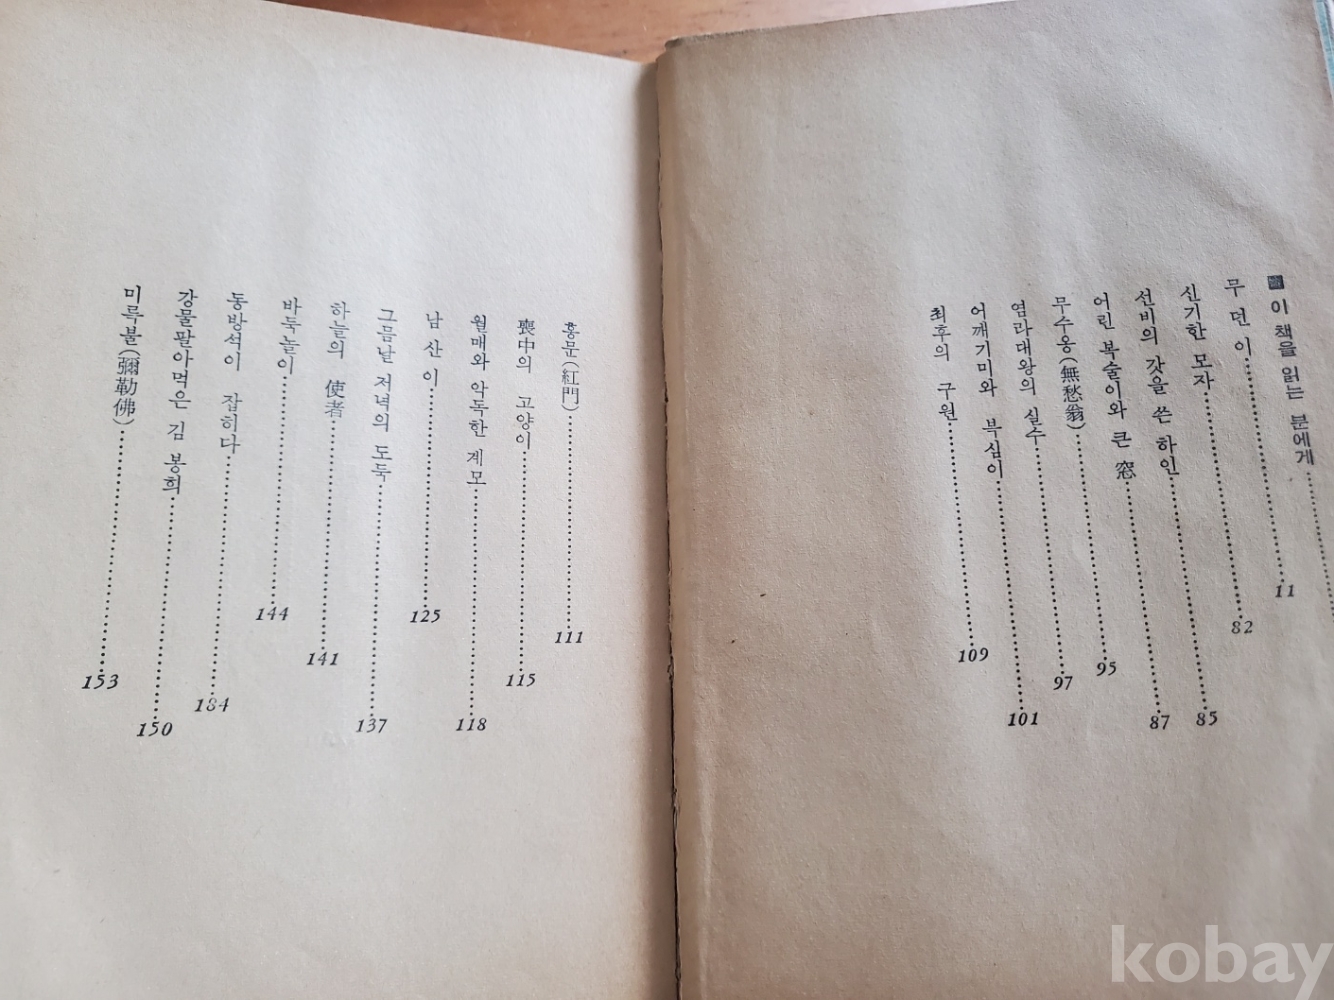 ▣이 책을 읽는 분에게……
무 던 이……11
신기한 모자……82
선비의 갓을 쓴 하인……85
어린 복술이와 큰 窓……87
무수옹(無愁翁)……95
염라대왕의 실수……97
어깨기미와 부심이……101
최후의 구원……109
홍문(紅門)……111
喪中의 고양이……115
월매와 악독한 계모……118
남 산 이……125
그믐날 저녁의 도둑……137
하늘의 使者……141
바둑놀이……144
동방석이 잡히다……184
강물팔아먹은 김 봉희……150
미륵불(彌勒佛)……153
kobay